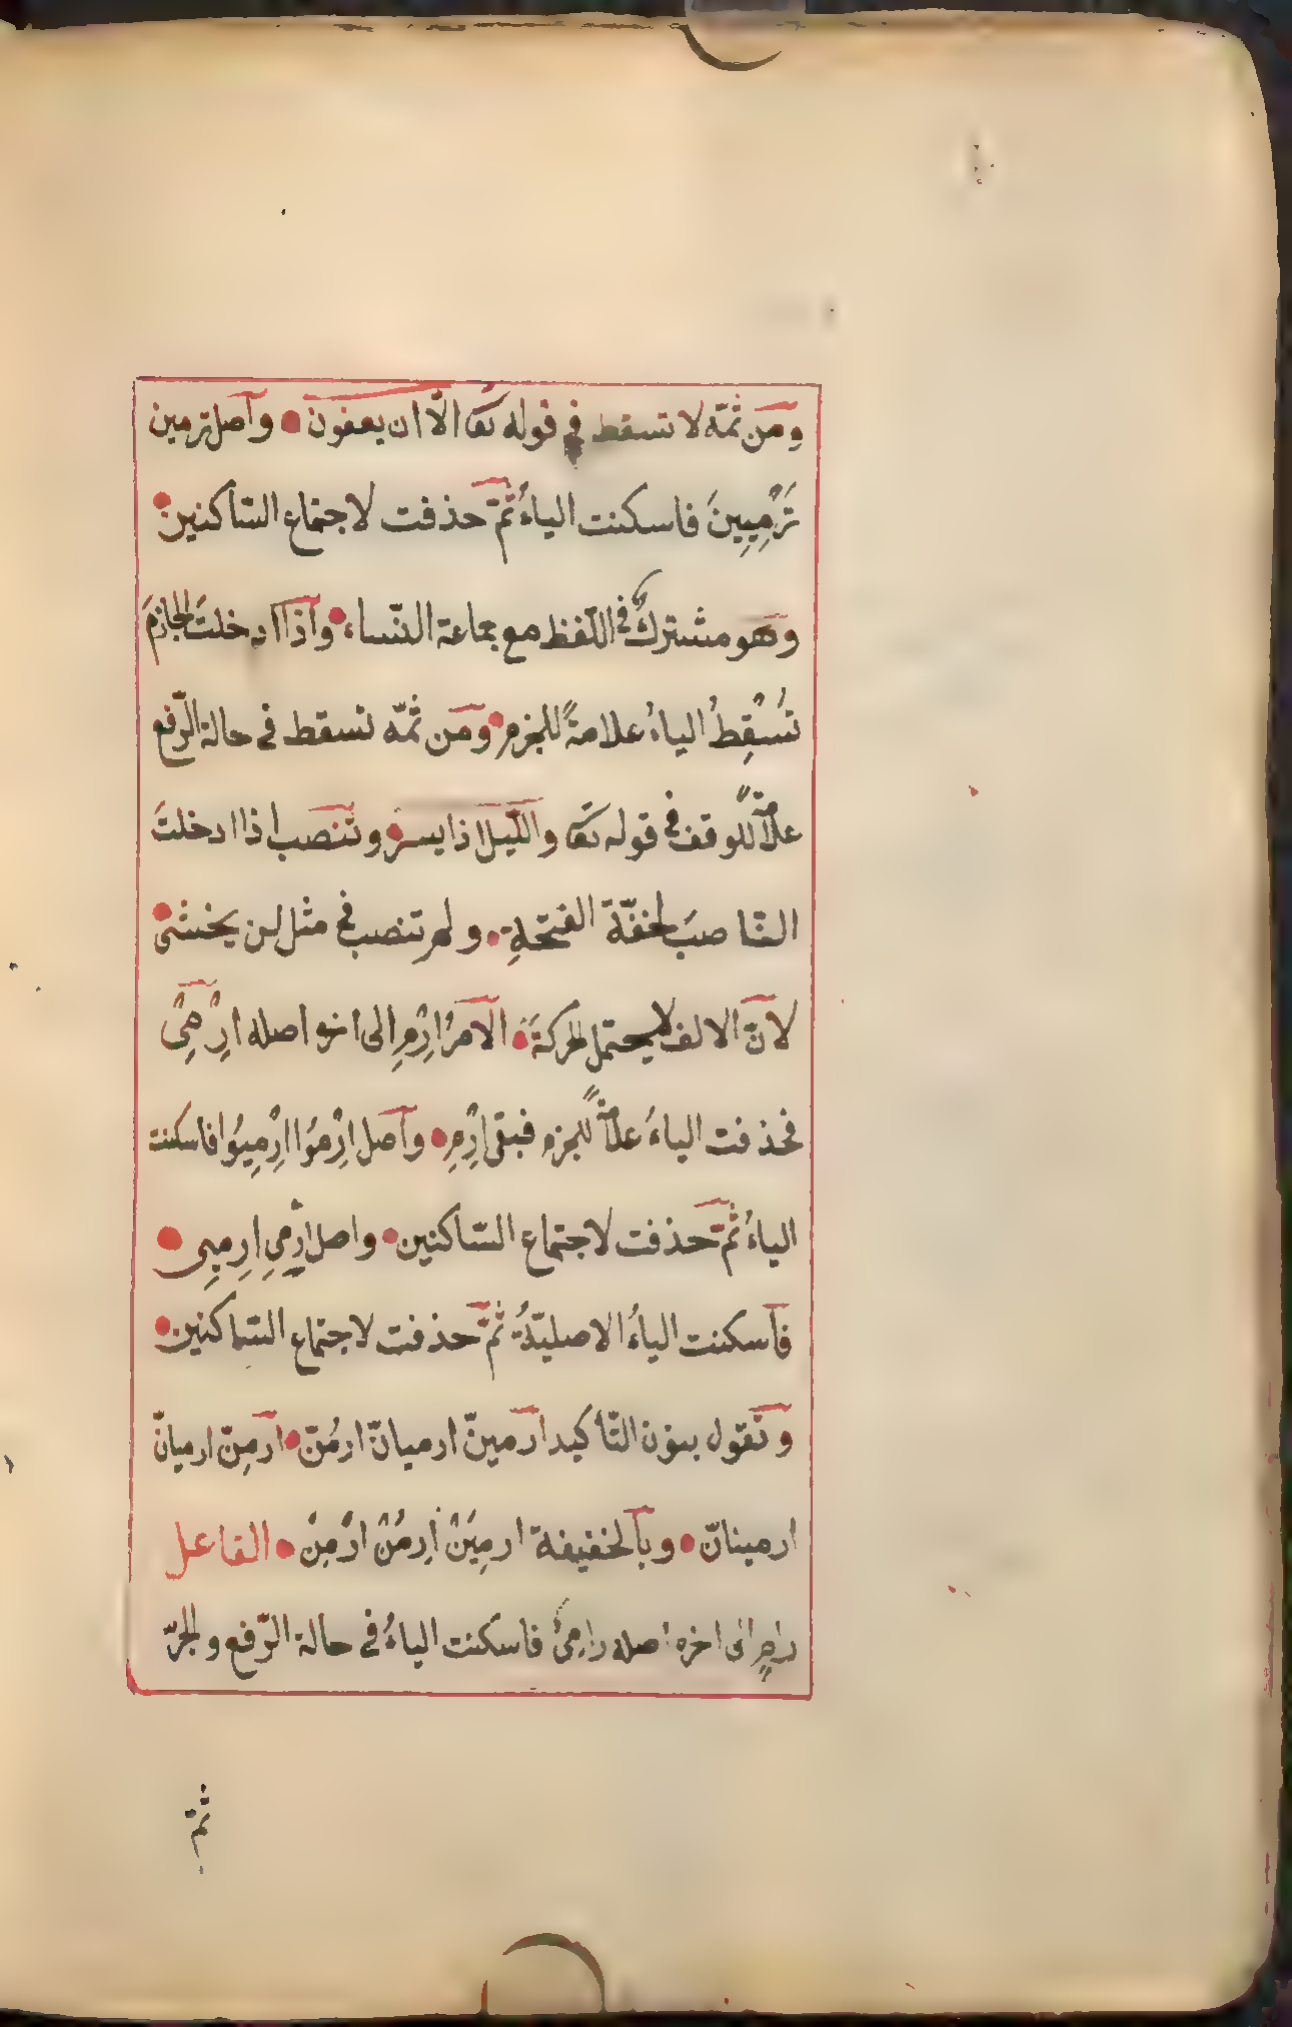 ومن ثمّه لا تسقط في قوله تعا الّا ان يعفون وأصل ترمين
تَرْمِيِينَ فاسكنت الياءُ ثمّ حذفت لاجتماع السّاكنين
وهو مشتركٌ في اللّفظ مع جماعة النّساء وأذا ادخلتَ الجازمَ
تَسْقِطُ الياءُ علامةً للجزم ومن ثمّه تسقط في حالة الرّفع
علامةً للوقف في قوله تعا واللّيل اذا يسر وتنصب اذا ادخلتَ
النّاصبَ لخفّة الفتحةِ ولم تنصب في مثل لن يخشى
لانّ الالف لا يحتمل الحركةَ الامرُ ارْمِ الى اخره اصله ارْمِىْ
فحذفت الياءُ علامةً للجزم فبقى ارْمِ وأصل ارْمُوا ارْمِيُوا فاسكنت
الياءُ ثمّ حذفت لاجتماع السّاكنين واصل ارْمِى ارمِيِى
فأسكنت الياءُ الاصليّةُ ثمّ حذفت لاجتماع السّاكنين
وتقول بنون التّأكيد ارمينّ ارميانّ ارمُنّ ارمِنّ ارميانّ
ارمينانّ وبالخفيفة ارمِيَنْ ارمُنْ ارْمِنْ الفاعل
رامٍ الى اخره اصله رامِىٌ فاسكنت الياءُ في حالة الرّفع والجرّ
ثمّ